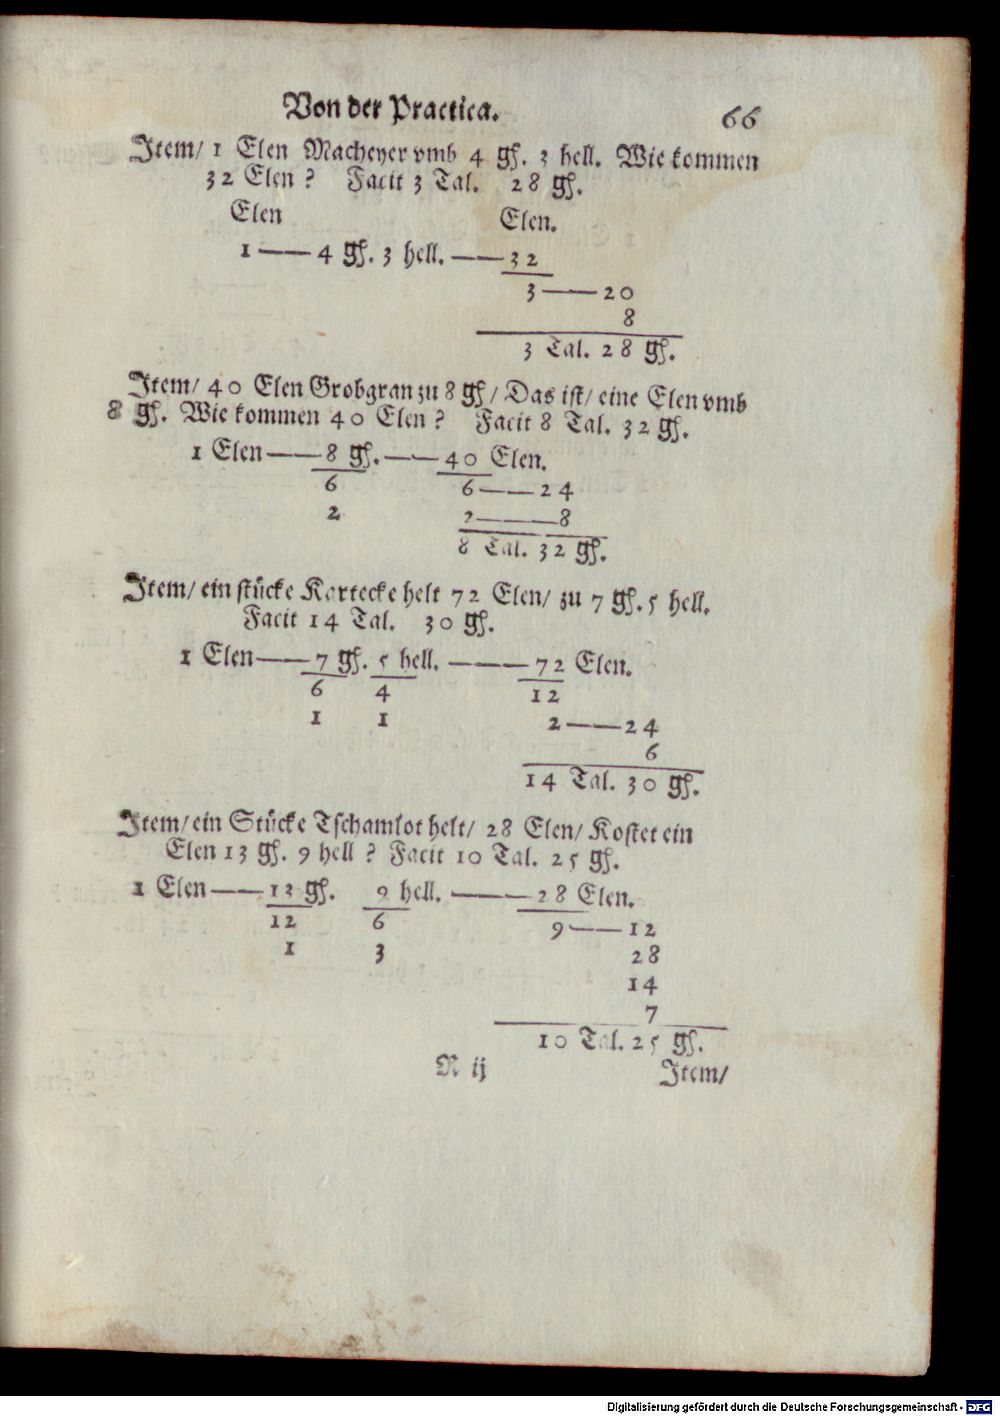 Von der Practica. 66
Item/ 1 Elen Macheyer vmb 4 gſ. 3 hell. Wie kommen
32 Elen? Facit 3 Tal. 28 gſ.
Elen Elen.
1 —— 4 gſ. 3 hell. —— 32
3 —— 20
8
3 Tal. 28 gſ.
Item/ 40 Elen Grobgran zu 8 gſ/ Das iſt/ eine Elen vmb
8 gſ. Wie kommen 40 Elen? Facit 8 Tal. 32 gſ.
1 Elen —— 8 gſ. —— 40 Elen.
6 6 —— 24
2 2 —— 8
8 Tal. 32 gſ.
Item/ ein ſtücke Kartecke helt 72 Elen/ zu 7 gſ. 5 hell.
Facit 14 Tal. 30 gſ.
1 Elen —— 7 gſ. 5 hell. —— 72 Elen.
6 4 12
1 1 2 —— 24
6
14 Tal. 30 gſ.
Item/ ein Stücke Tſchamlot helt/ 28 Elen/ Koſtet ein
Elen 13 gſ. 9 hell? Facit 10 Tal. 25 gſ.
1 Elen —— 13 gſ. 9 hell. —— 28 Elen.
12 6 9 —— 12
1 3 28
14
7
10 Tal. 25 gſ.
N ij Item/
Digitalisierung gefördert durch die Deutsche Forschungsgemeinschaft - DFG